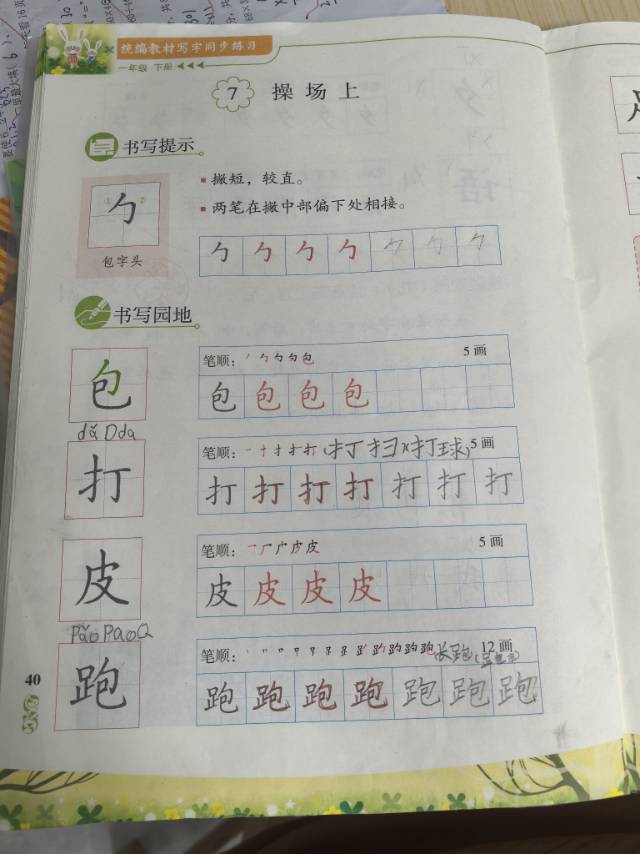 统编教材写字同步练习
一年级 下册
7 操场上
书写提示
撇短，较直。
两笔在撇中部偏下处相接。
勹 ① ②
包字头
勹 勹 勹 勹 勹 勹 勹
书写园地
包
笔顺： 5 画
包 包 包 包
dǎ D da
打
笔顺： (打扫)(打球) 5 画
打 打 打 打 打 打 打
皮
笔顺： 5 画
皮 皮 皮 皮
Pǎo Pao Q
跑
笔顺： 长跑 12 画
跑 跑 跑 跑 跑 跑 跑
40